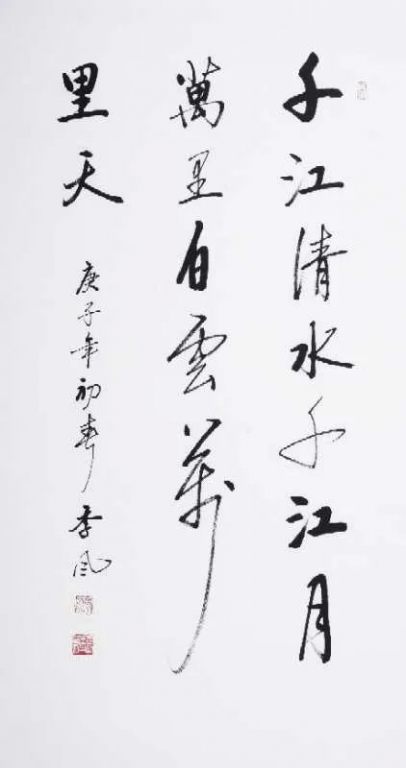 千江清水千江月
萬里白雲萬
里天
庚子年初春 季风